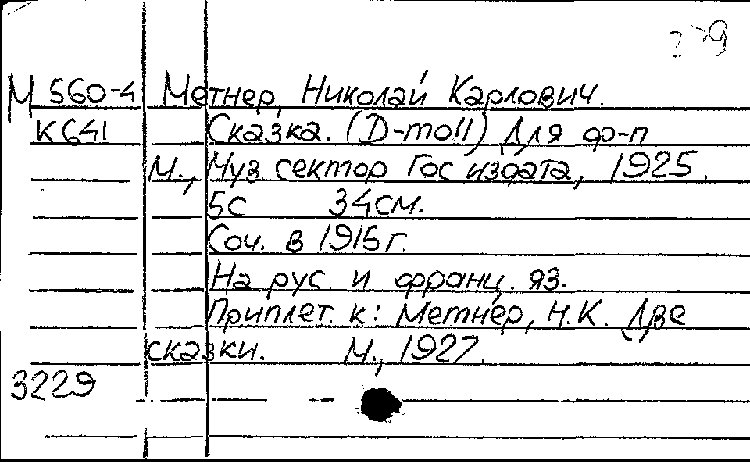 М 560-4 Метнер, Николай Карлович.
К641 Сказка. (D-moll) Для ф-п
М., Муз сектор Гос издата, 1925.
5с 34см.
Соч. в 1915г.
На рус. и франц. яз.
Приплет. к: Метнер, Н.К. Две
сказки. М., 1927.
3229